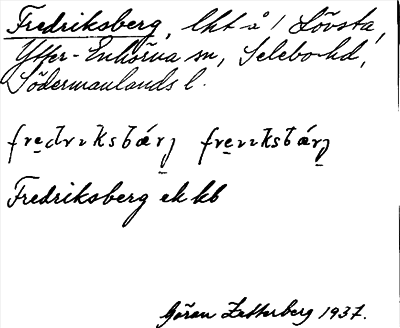 Fredriksberg, lht å 1 Lövsta,
Ytter-Enhörna sn, Selebo hd,
Södermanlands l.
Fredriksberg ek kb
Göran Zetterberg 1937.